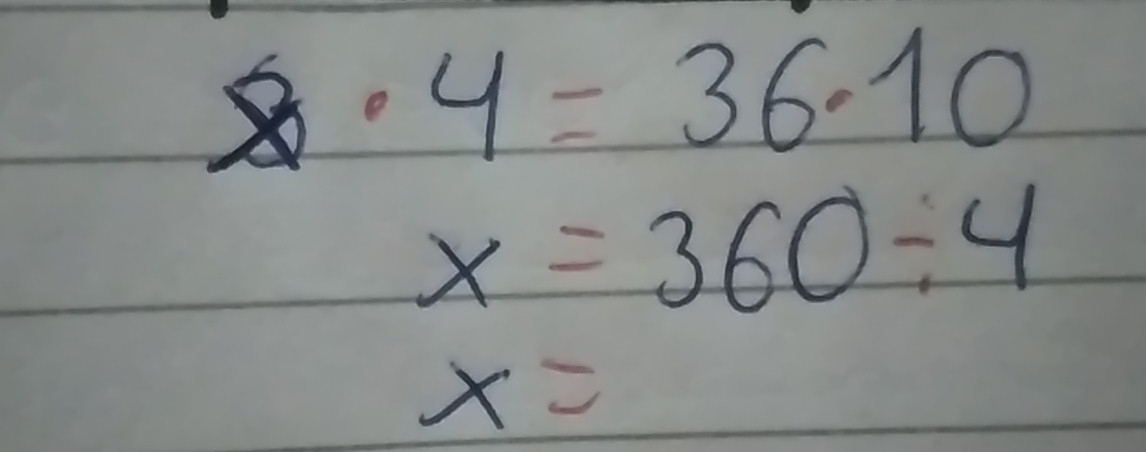 x · 4 = 36 · 10
x = 360 ÷ 4
x =